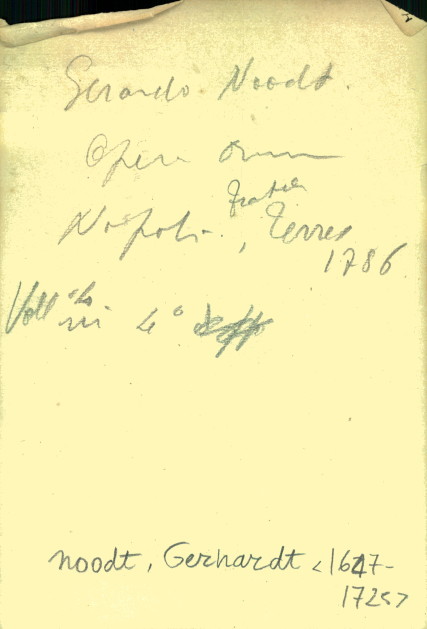 Gerardo Noodt.
Opera Omn
Napoli. , fratelli Terres
1786
Voll
in 4°
Noodt, Gerhardt <1647-
1725>